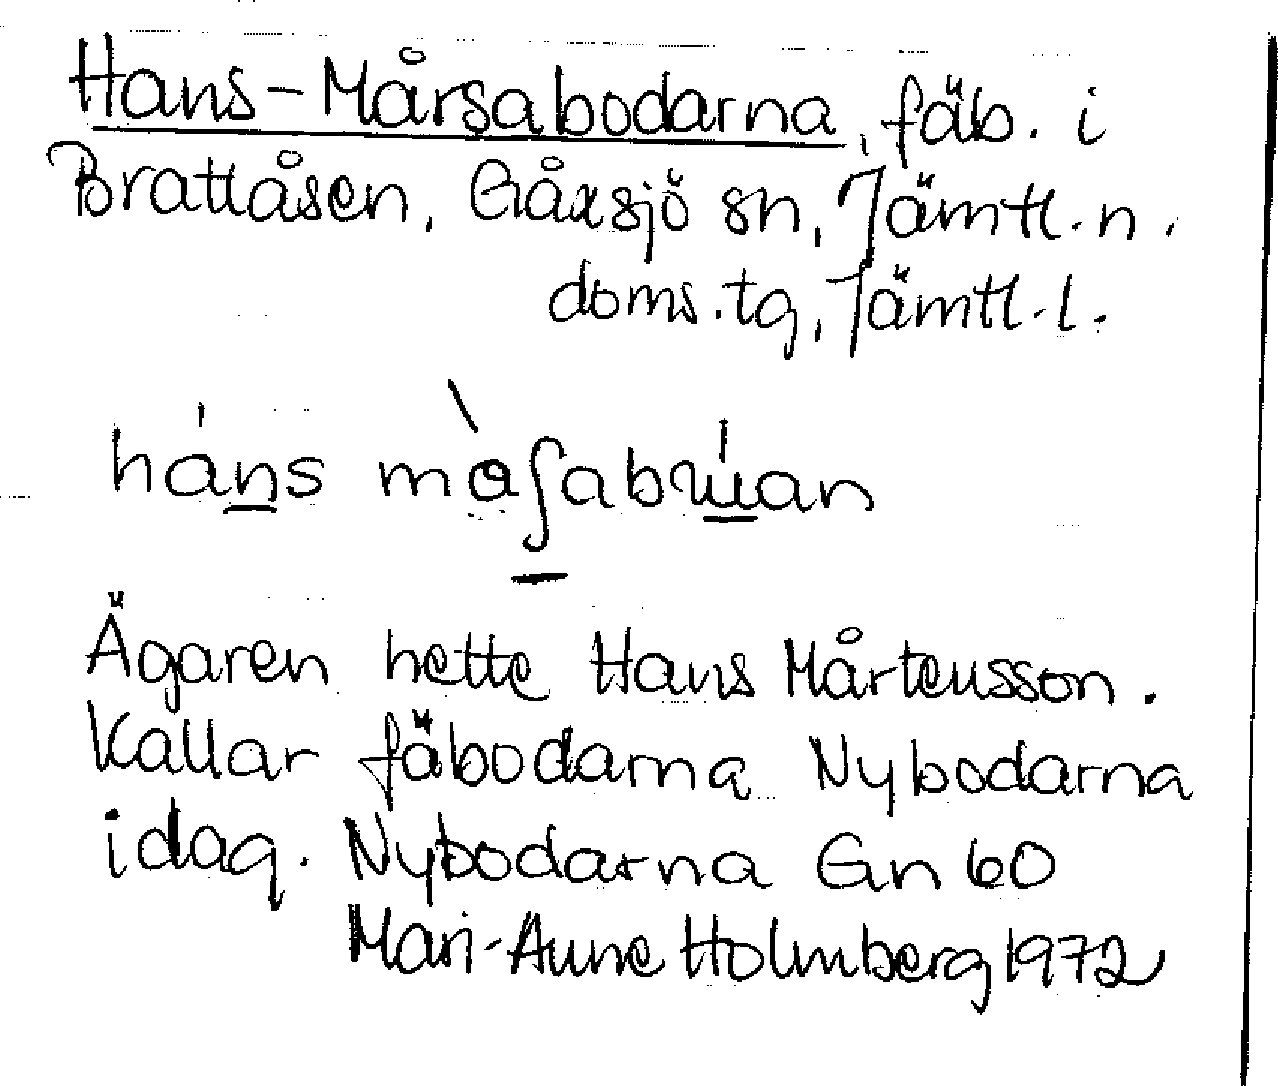 Hans-Mårsabodarna, fäb. i
Brattåsen, Gåxsjö sn, Jämtl. n.
doms.tg, Jämtl. l.
háns
Ägaren hette Hans Mårtensson.
Kallar fäbodarna Nybodarna
idag. Nybodarna Gn 60
Mari-Anne Holmberg 1972